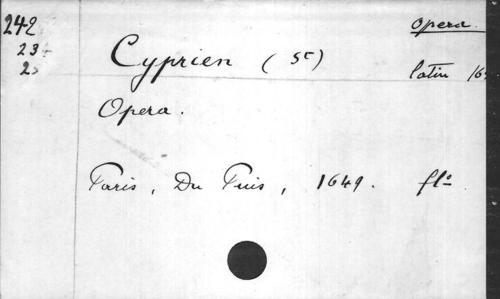 242 opera.
23
2
Cyprien (St) latin 16
Opera.
Paris, Du Puis, 1649. flo